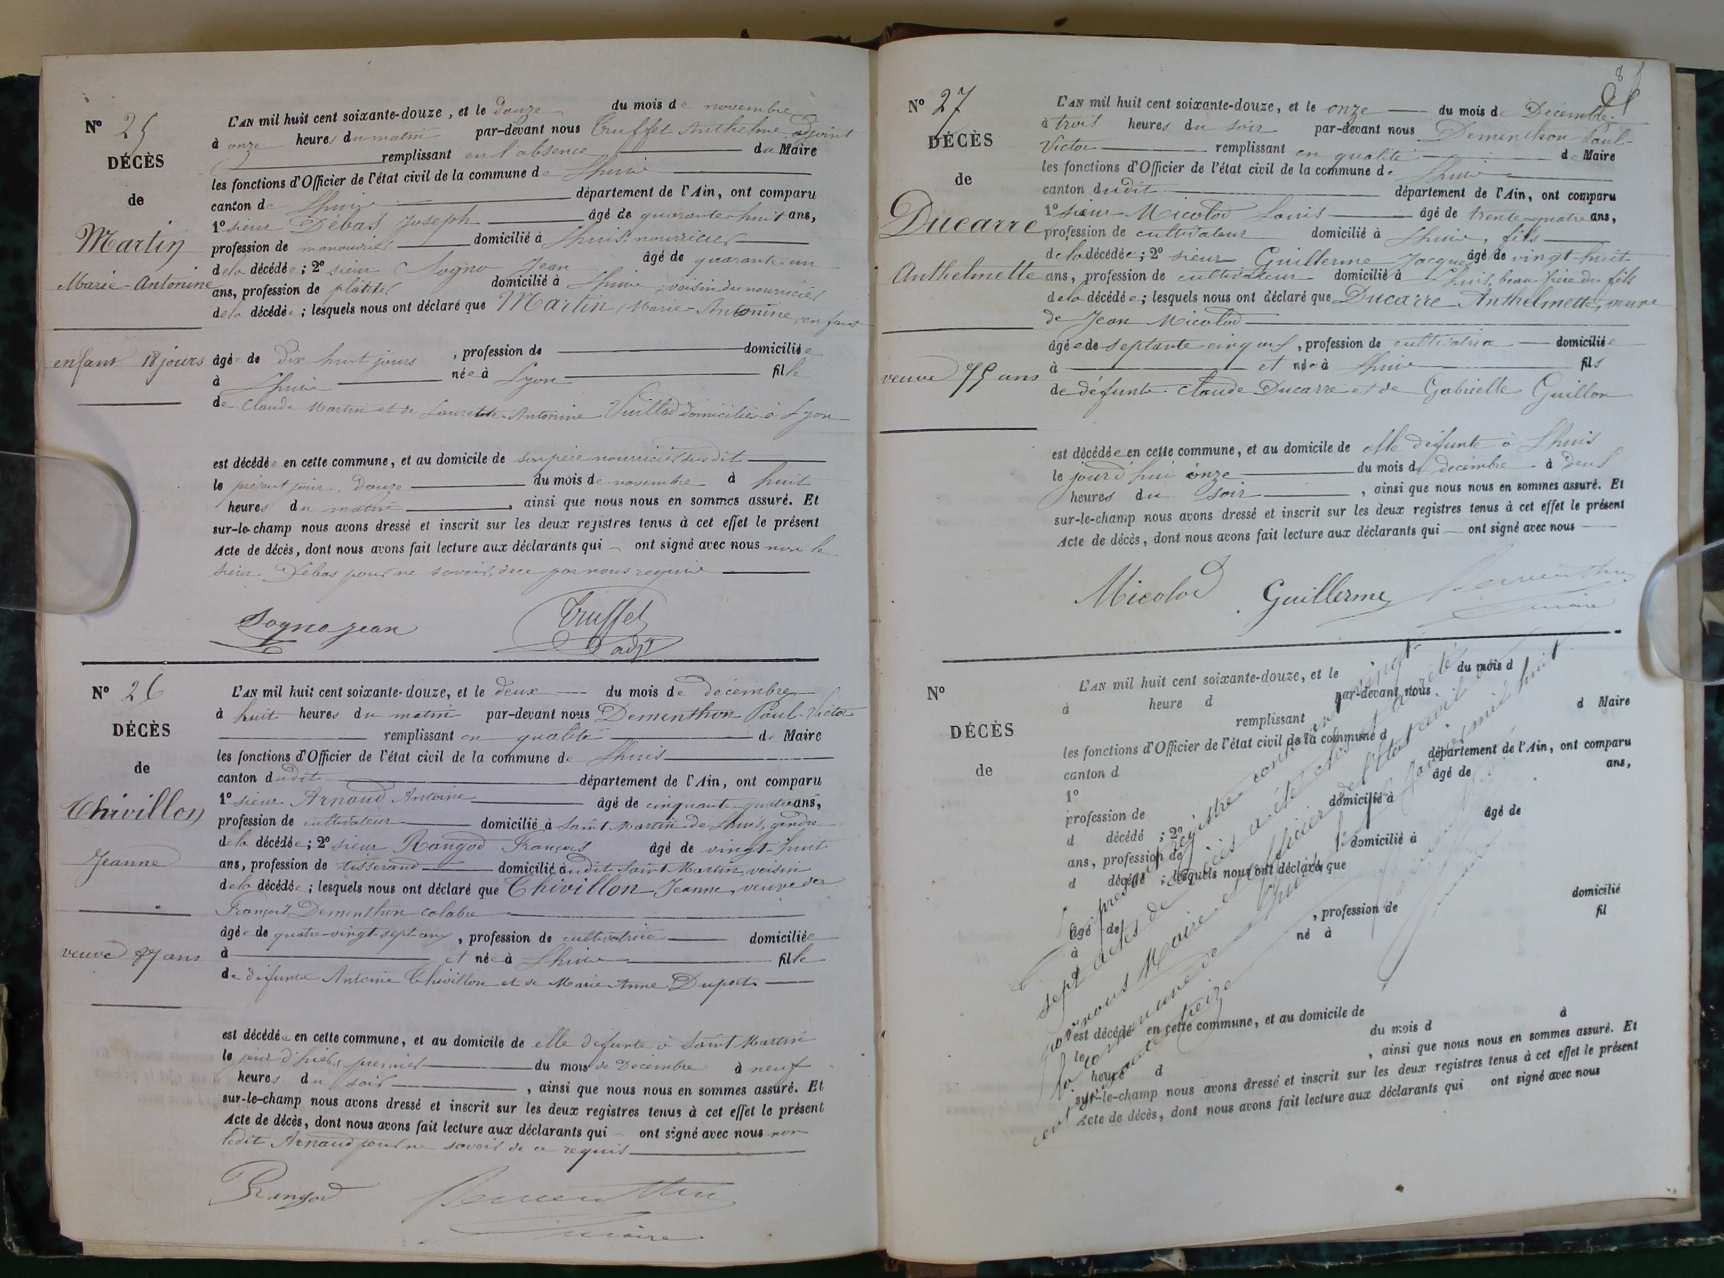 N° 25
DÉCÈS
de
Martin
Marie-Antonine
enfant 18 jours
L'AN mil huit cent soixante-douze, et le douze du mois de novembre
à onze heures du matin par-devant nous Truffet Anthelme adjoint
remplissant en l'absence du Maire
les fonctions d'Officier de l'état civil de la commune de Lhuis
canton de Lhuis département de l'Ain, ont comparu
1° sieur Débas Joseph âgé de quarante-huit ans,
profession de manouvrier domicilié à Lhuis, nourricier
de la décédée; 2° sieur Sogno Jean âgé de quarante-un
ans, profession de plâtrier domicilié à Lhuis, voisin du nourricier
de la décédée; lesquels nous ont déclaré que Martin, Marie-Antonine, enfant
âgée de dix huit jours, profession de domiciliée
à Lhuis née à Lyon fille
de Claude Martin et de Antonine Vuillod domiciliés à Lyon
est décédée en cette commune, et au domicile de son père nourricier susdit
le présent jour, douze du mois de novembre à huit
heures du matin, ainsi que nous nous en sommes assuré. Et
sur-le-champ nous avons dressé et inscrit sur les deux registres tenus à cet effet le présent
Acte de décès, dont nous avons fait lecture aux déclarants qui ont signé avec nous non le
sieur Débas pour ne savoir, de ce par nous requis
Sogno jean Truffet
adjt
N° 26
DÉCÈS
de
Chivillon
Jeanne
veuve 87 ans
L'AN mil huit cent soixante-douze, et le deux du mois de décembre
à huit heures du matin par-devant nous Dementhon Paul-Victor
remplissant en qualité de Maire
les fonctions d'Officier de l'état civil de la commune de Lhuis
canton dudit département de l'Ain, ont comparu
1° sieur Arnaud Antoine âgé de cinquante-quatre ans,
profession de cultivateur domicilié à Saint Martin de Lhuis, gendre
de la décédée; 2° sieur Rangod François âgé de vingt-huit
ans, profession de tisserand domicilié audit Saint Martin, voisin
de la décédée; lesquels nous ont déclaré que Chivillon Jeanne, veuve de
François Dementhon
âgée de quatre-vingt-sept ans, profession de cultivatrice domiciliée
à et née à Lhuis fille
de défunts Antoine Chivillon et de Marie Anne Duport
est décédée en cette commune, et au domicile de elle défunte à Saint Martin
le jour d'hier, premier du mois de Décembre à neuf
heures du soir, ainsi que nous nous en sommes assuré. Et
sur-le-champ nous avons dressé et inscrit sur les deux registres tenus à cet effet le présent
Acte de décès, dont nous avons fait lecture aux déclarants qui ont signé avec nous non
ledit Arnaud pour ne savoir de ce requis
Rangod Dementhon
maire
8
N° 27
DÉCÈS
de
Ducarre
Anthelmette
veuve 75 ans
L'AN mil huit cent soixante-douze, et le onze du mois de Décembre
à trois heures du soir par-devant nous Dementhon Paul-
Victor remplissant en qualité de Maire
les fonctions d'Officier de l'état civil de la commune de Lhuis
canton dudit département de l'Ain, ont comparu
1° sieur Micolod Louis âgé de trente-quatre ans,
profession de cultivateur domicilié à Lhuis, fils
de la décédée; 2° sieur Guillerme Jacques âgé de vingt-huit
ans, profession de cultivateur domicilié à Lhuis, beau frère du fils
de la décédée; lesquels nous ont déclaré que Ducarre Anthelmette, veuve
de Jean Micolod
âgée de septante cinq ans, profession de cultivatrice domiciliée
à et née à Lhuis fils
de défunts Claude Ducarre et de Gabrielle Guillon
est décédée en cette commune, et au domicile de elle défunte à Lhuis
le jour d'hui onze du mois de décembre à deux
heures du soir, ainsi que nous nous en sommes assuré. Et
sur-le-champ nous avons dressé et inscrit sur les deux registres tenus à cet effet le présent
Acte de décès, dont nous avons fait lecture aux déclarants qui ont signé avec nous
Micolod Guillerme Dementhon
maire
N°
DÉCÈS
de
L'AN mil huit cent soixante-douze, et le du mois d
à heure d par-devant nous
remplissant d Maire
les fonctions d'Officier de l'état civil de la commune d
canton d département de l'Ain, ont comparu
1° âgé de ans,
profession de domicilié à
d décédé ; 2° âgé de
ans, profession de domicilié à
d décédé ; lesquels nous ont déclaré que
âgé de , profession de domicilié
à né à fil
est décédé en cette commune, et au domicile de
le du mois d à
heure d , ainsi que nous nous en sommes assuré. Et
sur-le-champ nous avons dressé et inscrit sur les deux registres tenus à cet effet le présent
Acte de décès, dont nous avons fait lecture aux déclarants qui ont signé avec nous
Le présent registre contenant vingt
sept actes de décès a été clos et arrêté
par nous Maire et officier de l'état civil de
la commune de Lhuis, le janvier mil huit
cent soixante treize